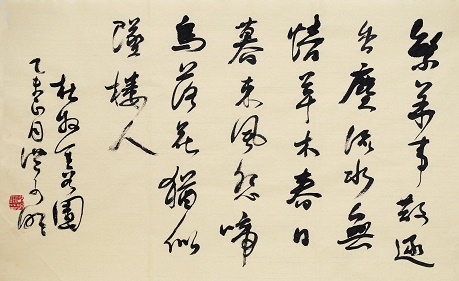 繁華事散逐
香塵流水無
情草木春日
暮東風怨啼
鳥落花猶似
墜樓人
杜牧金谷園
乙未正月